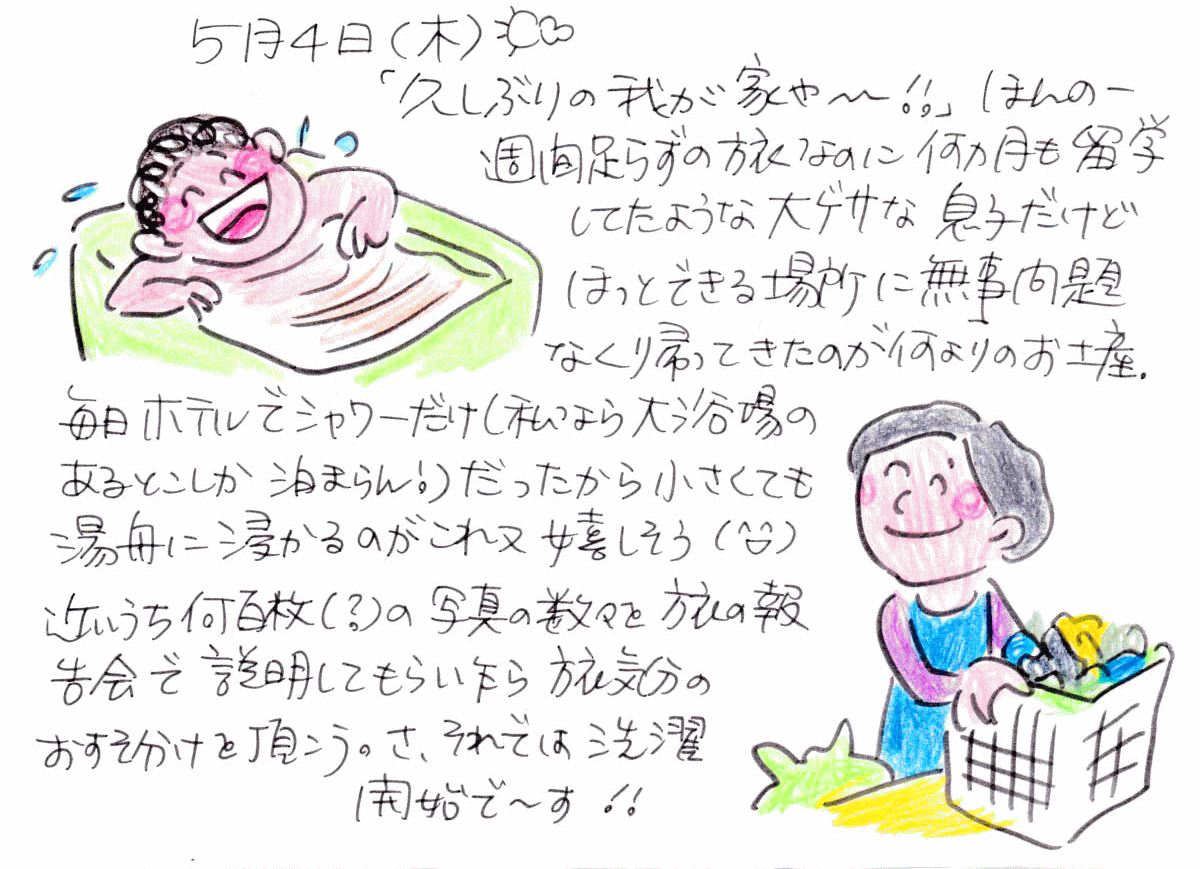 5月4日(木)
「久しぶりの我が家や〜!!」ほんの一
週間足らずの旅なのに何カ月も留学
してたような大ゲサな息子だけど
ほっとできる場所に無事問題
なくり帰ってきたのが何よりのお土産.
毎日ホテルでシャワーだけ(私なら大浴場の
あるとこしか泊まらん!)だったから小さくても
湯舟に浸かるのがこれ又嬉しそう(^^)
近いうち何百枚(?)の写真の数々を旅の報
告会で説明してもらい乍ら旅気分の
おすそ分けを頂こう。さ、それでは洗濯
開始で〜す!!